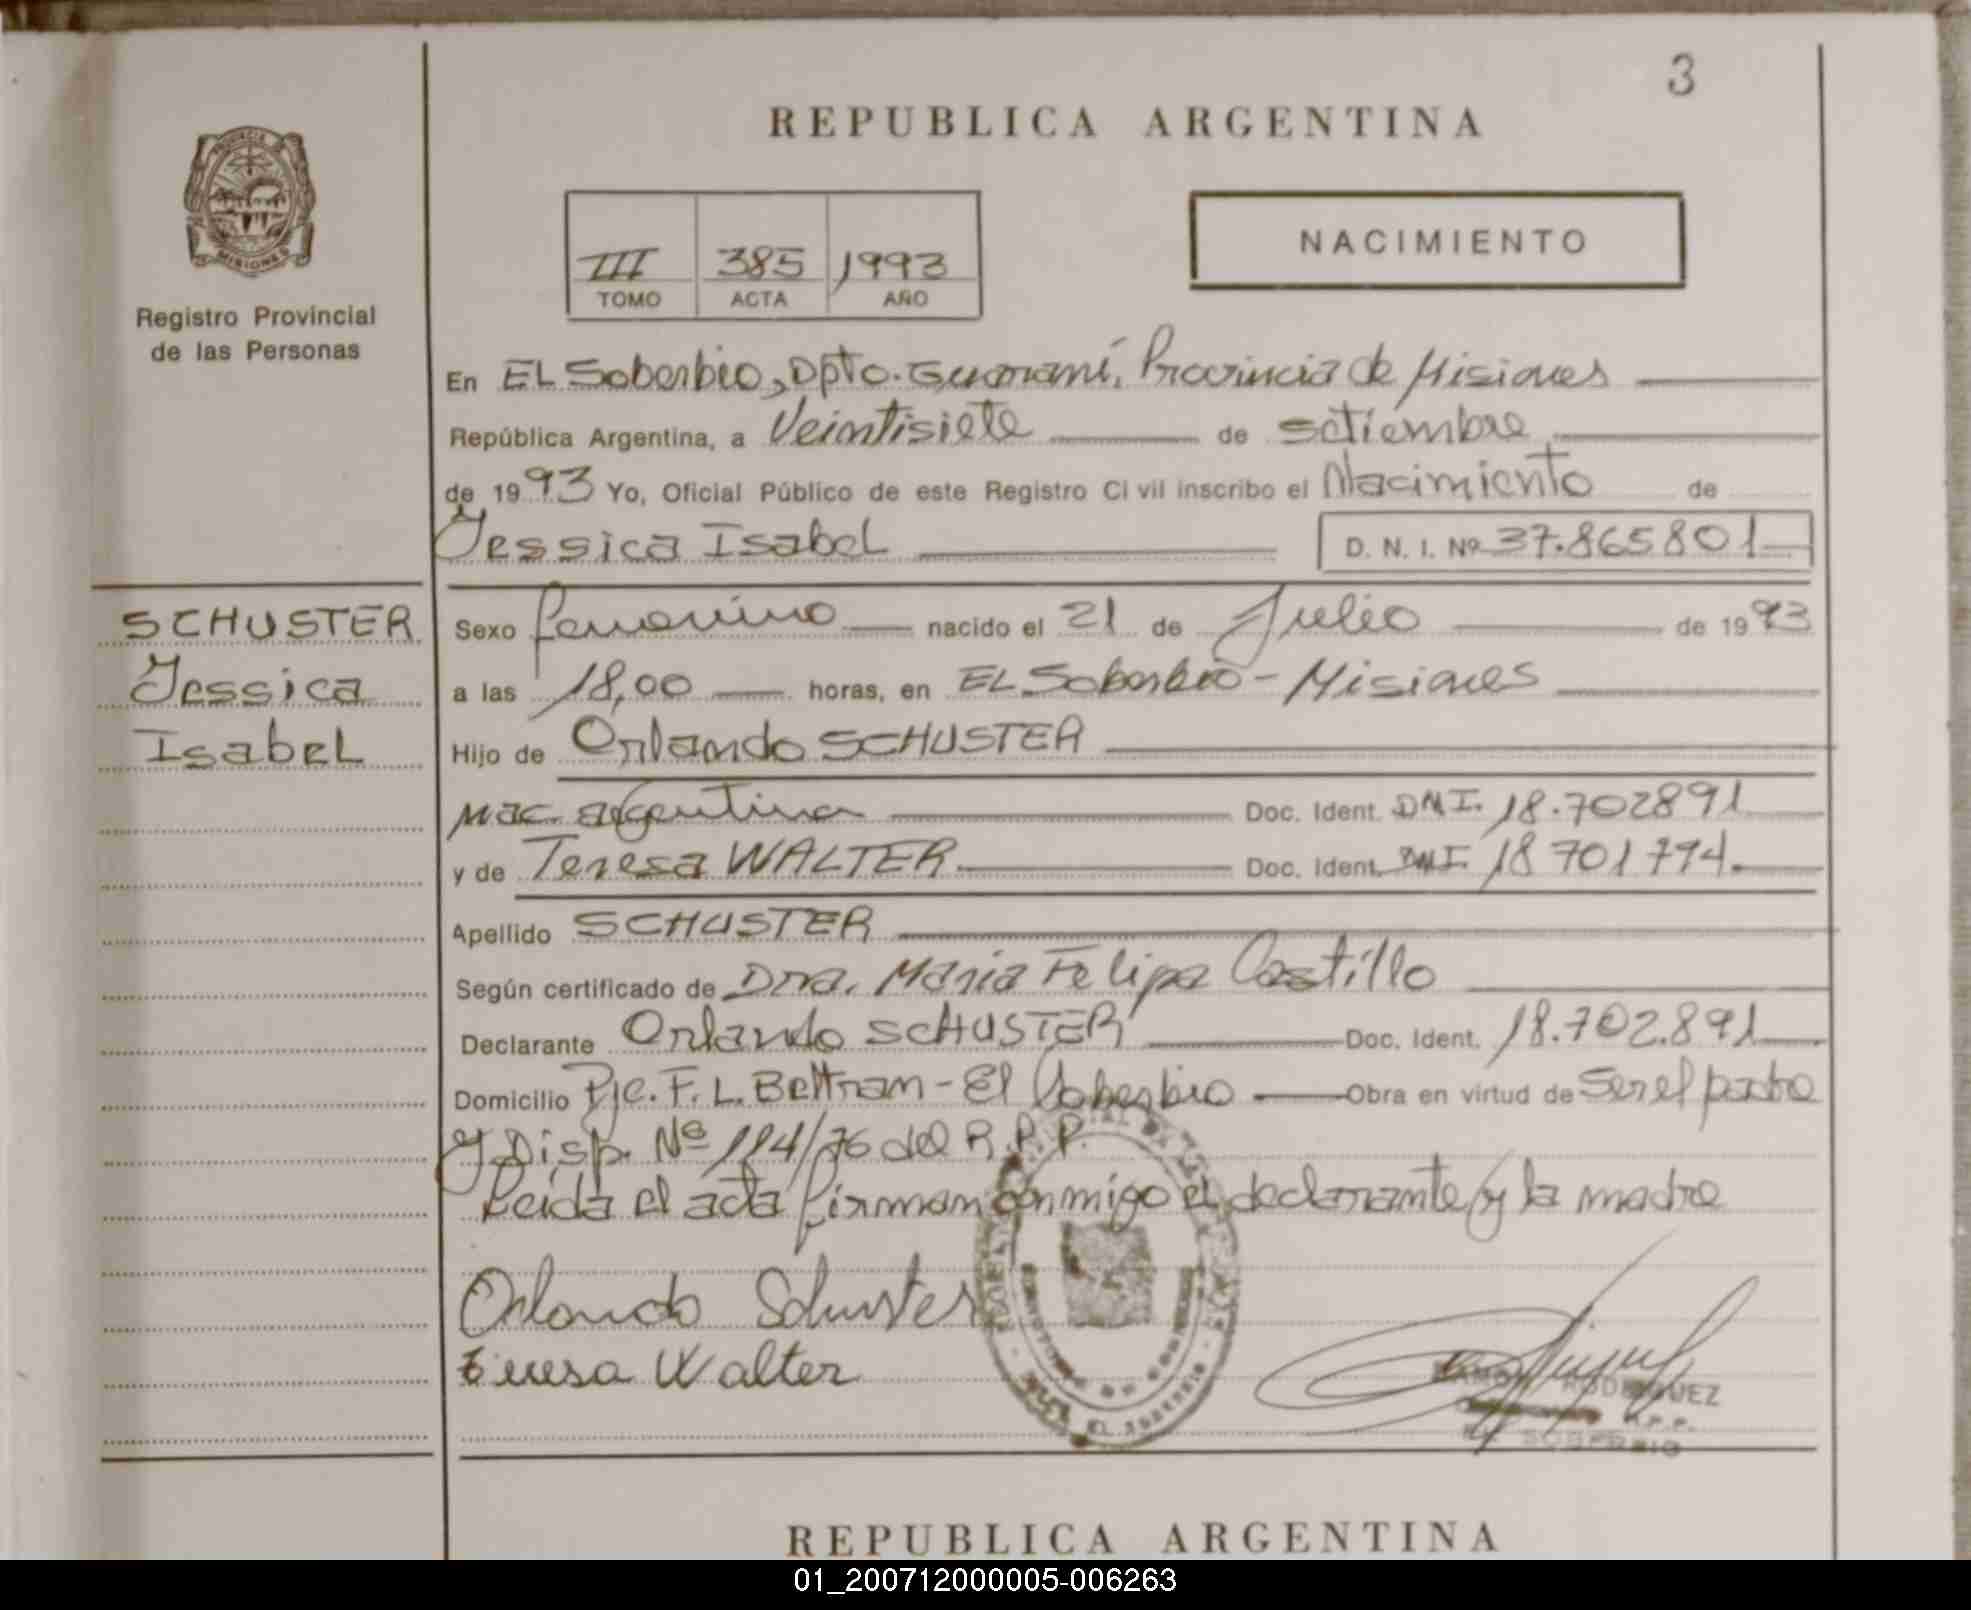 3
REPUBLICA ARGENTINA
NACIMIENTO
III 385 1993
TOMO ACTA AÑO
MISIONES
Registro Provincial
de las Personas
En EL Soberbio, Dpto. Guaraní, Provincia de Misiones
República Argentina, a Veintisiete de setiembre
de 1993 Yo, Oficial Público de este Registro Civil inscribo el Nacimiento de
Jessica Isabel D. N. I. Nº 37.865801
SCHUSTER
Jessica
Isabel
Sexo femenino nacido el 21 de Julio de 1993
a las 18,00 horas, en EL Soberbio - Misiones
Hijo de Orlando SCHUSTER
nac. argentina Doc. Ident. DNI. 18.702891
y de Teresa WALTER Doc. Ident. DNI. 18 701794.
Apellido SCHUSTER
Según certificado de Dra. Maria Felipa Castillo
Declarante Orlando SCHUSTER Doc. Ident. 18.702.891
Domicilio Pje. F. L. Beltran - El Soberbio Obra en virtud de Ser el padre
y Disp. Nº 114/76 del R.P.P.
Leida el acta firman conmigo el declarante y la madre
Orlando Schuster
teresa Walter
RODRIGUEZ
R.P.P.
EL SOBERBIO
REPUBLICA ARGENTINA
01_200712000005-006263